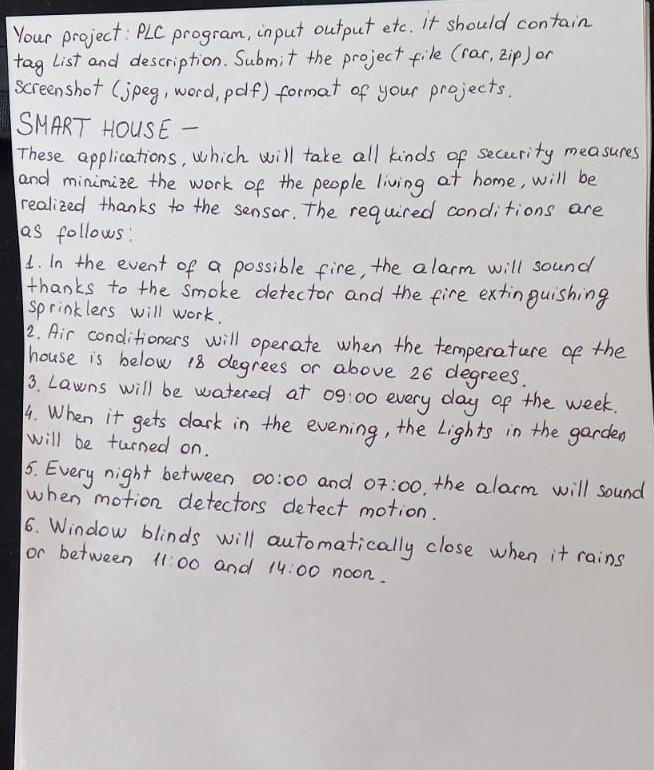 Your project: PLC program, input output etc. It should contain
tag List and description. Submit the project file (rar, zip) or
Screenshot (jpeg, word, pdf) format of your projects.
SMART HOUSE -
These applications, which will take all kinds of security measures
and minimize the work of the people living at home, will be
realized thanks to the sensor. The required conditions are
as follows:
1. In the event of a possible fire, the alarm will sound
thanks to the smoke detector and the fire extinguishing
sprinklers will work.
2. Air conditioners will operate when the temperature of the
house is below 18 degrees or above 26 degrees.
3. Lawns will be watered at 09:00 every day of the week.
4. When it gets dark in the evening, the Lights in the garden
will be turned on.
5. Every night between 00:00 and 07:00, the alarm will sound
when motion detectors detect motion.
6. Window blinds will automatically close when it rains
or between 11:00 and 14:00 noon.